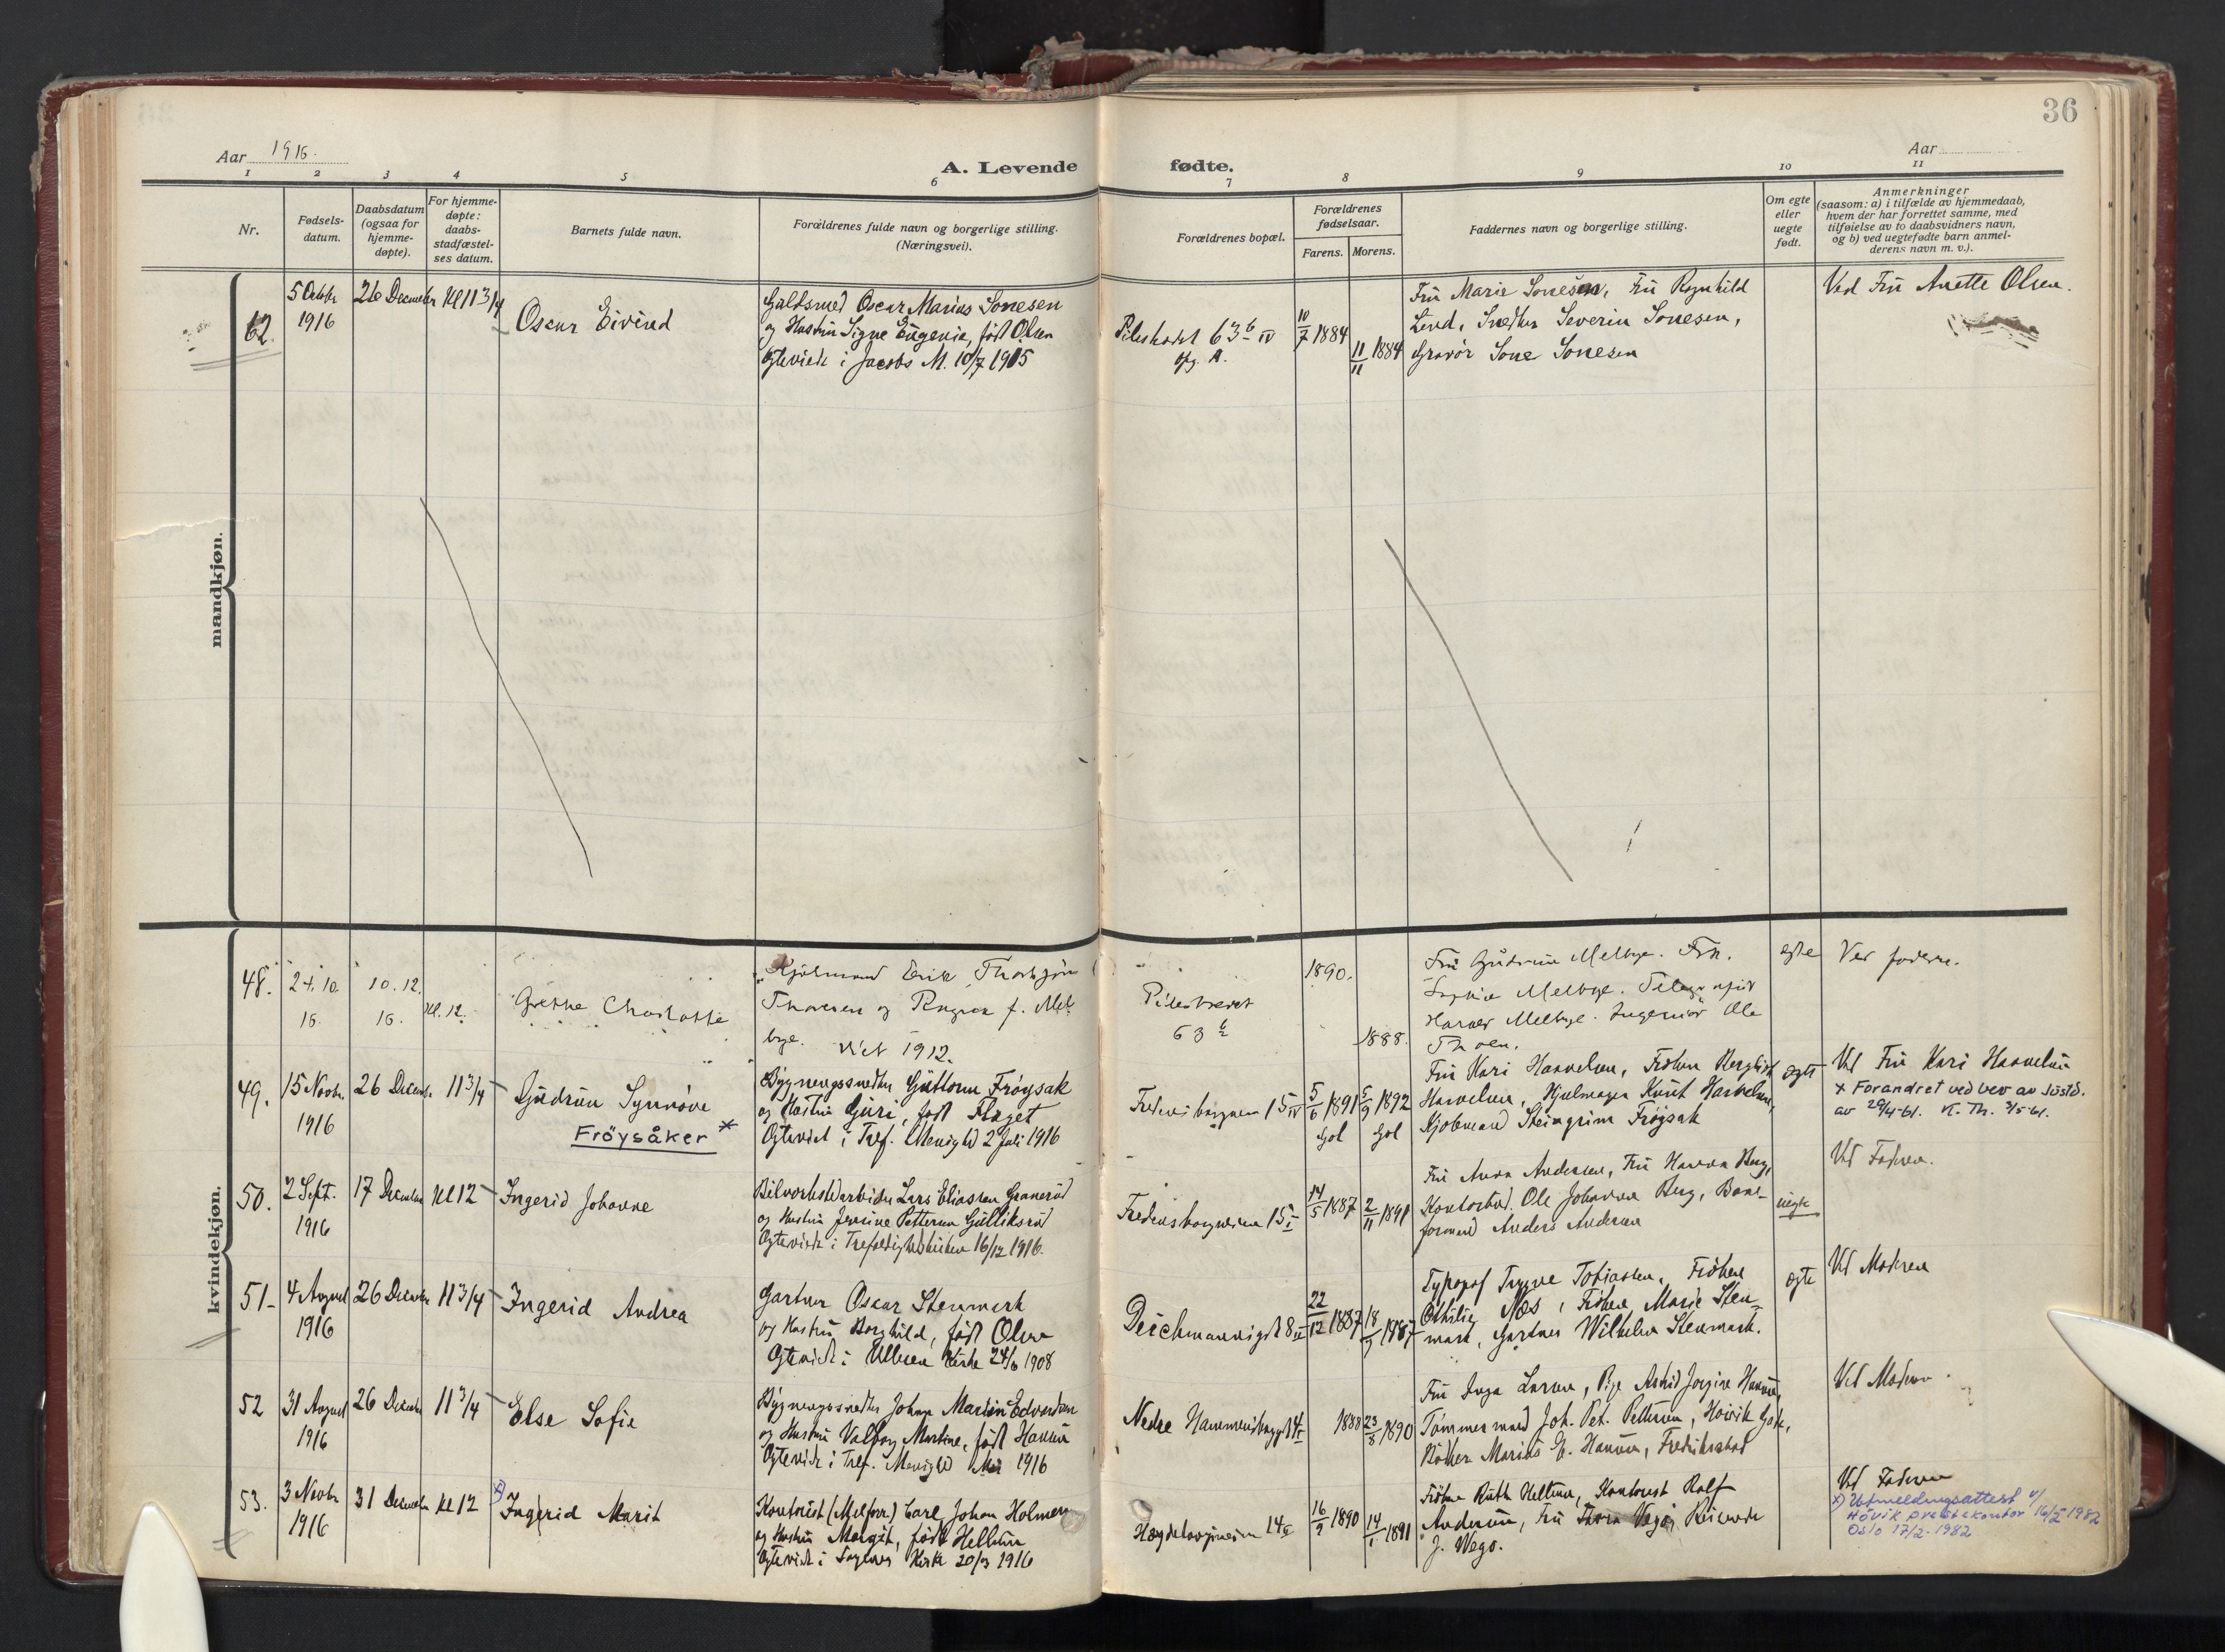 36
Aar 1916.
A. Levende fødte.
Aar
1 2 3 4 5 6 7 8 9 10 11
Nr.
Fødsels-
datum.
Daabsdatum
(ogsaa for
hjemme-
døpte).
For hjemme-
døpte:
daabs-
stadfæstel-
ses datum.
Barnets fulde navn.
Forældrenes fulde navn og borgerlige stilling.
(Næringsvei).
Forældrenes bopæl.
Forældrenes
fødselsaar.
Farens. Morens.
Faddernes navn og borgerlige stilling.
Om egte
eller
uegte
født.
Anmerkninger
(saasom: a) i tilfælde av hjemmedaab,
hvem der har forrettet samme, med
tilføielse av to daabsvidners navn,
og b) ved uegtefødte barn anmel-
derens navn m. v.).
mandkjøn.
62.
5 Octobr
1916
26 December
Kl 11 3/4
Oscar Eivind
Guldsmed Oscar Marius Sonesen
og Hustru Signe Eugenie, født Olsen
Egteviede i Jacobs M. 10/7 1915
Pilestrædet 63 b IV
opg. A.
10/7 1884
11/11 1884
Fru Marie Sonesen, Fru Ragnhild
Lund, Snedker Severin Sonesen,
Gravør Sone Sonesen
Ved Fru Anette Olsen.
kvindekjøn.
48.
24. 10.
16.
10. 12.
16.
Kl. 12.
Grethe Charlotte
Kjøbmand Erik Thorbjørn
Thoresen og Ragna f. Mel-
bye. viet 1912.
Pilestrædet
63 b
1890.
1888.
Fru Gudrun Melbye. Frk.
Melbye. Telegrafist
Harald Melbye. Ingeniør Ole
Thoen.
egte
Ved faderen.
49.
15 Novbr.
1916
26 Decembr
11 3/4
Gudrun Synnøve
Frøysåker *
Bygningssnedker Guttorm Frøysak
og Hustru Guri, født Flaget
Egteviet i Tref. Menighed 2 Juli 1916
Fredensborgveien 15 IV
5/6 1891
Gol
5/9 1892
Gol
Fru Kari Haavelsen, Frøken Bergljot
Haavelsen, Hjulmager Knut Haavelsen,
Kjøbmand Steingrim Frøysak
egte
Ved Fru Kari Haavelsen
x Forandret ved bev av Justd.
av 29/4-61. K. Th. 3/5-61.
50.
2 Sept.
1916
17 December
Kl 12
Ingerid Johanne
Bilverkstedarbeider Lars Eliassen Granerud
og Hustru Jensine Petterson Gulliksrud
Egteviede i Trefoldighedskirken 16/12 1916.
Fredensborgveien 15 I
14/5 1887
2/11 1891
Fru Anna Andersen, Fru Hanna Berg,
Kontorbud Ole Johannes Berg, Bane-
formand Anders Andersen
uegte
Ved Faderen.
51
4 August
1916
26 December
11 3/4
Ingerid Andrea
Gartner Oscar Stenmark
og Hustru Borghild, født Olsen
Egteviet i Ullern Kirke 24/6 1908
Deichmannsgt 8 II
22/12 1887
18/9 1887
Typograf Trygve Tobiassen, Frøken
Othilie Næs, Frøken Marie Sten-
mark, Gartner Wilhelm Stenmark.
egte
Ved Moderen
52
31 August
1916
26 December
11 3/4
Else Sofie
Bygningssnedker Johan Martin Edvardsen
og Hustru Valborg Martine, født Hansen
Egteviede i Tref. Menighed Mai 1916
Nedre Hammersborggt 4 I
1888
23/8 1890
Fru Inga Larsen, Pige Astrid Jorgine Hansen,
Tømmermand Joh. Pet. Pettersen, Høivik Gade,
Bøker Marius E. Hansen, Fredrikstad
Ved Moderen.
53.
3 Novbr
1916
31 December
Kl 12
x) Ingerid Marit
Kontorist (Melforr.) Carl Johan Holmen
og Hustru Margit, født Hellum
Egteviede i Fagernes Kirke 20/3 1916
Hægdehaugsveien 14
16/9 1890
14/1 1891
Frøken Ruth Hellum, Kontorist Rolf
Andersen, Fru Thora Vego, Reisende
J. Wego.
Ved Faderen
x) Utmeldingsattest v/
Høvik prestekontor 16/2 1982
Oslo 17/2-1982